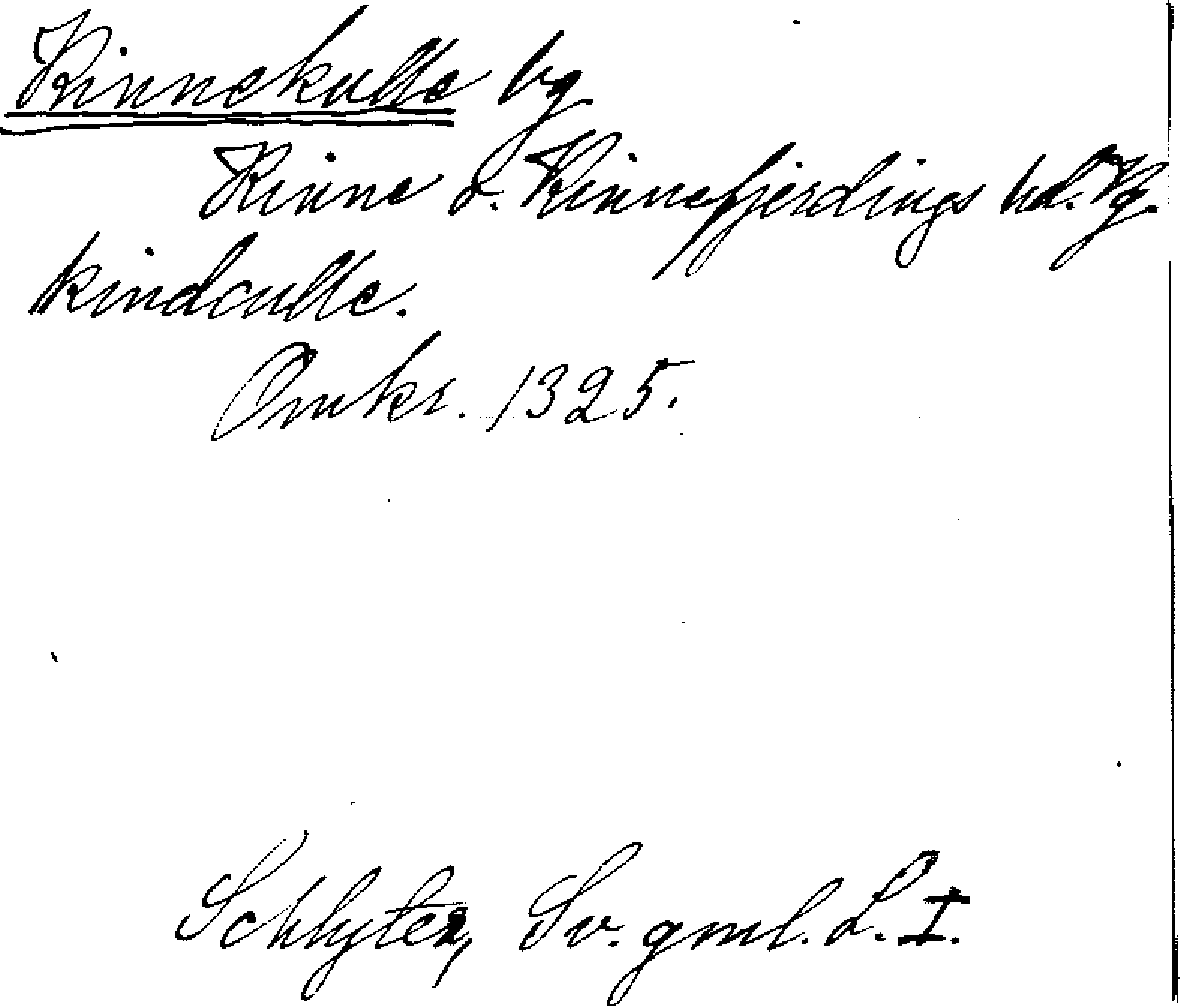 Kinnekulle bg
Kinne s. Kinnefjerdings hd. Vg.
kindculle.
Omkr. 1325.
Schlyter, Sv. gml. L. I.